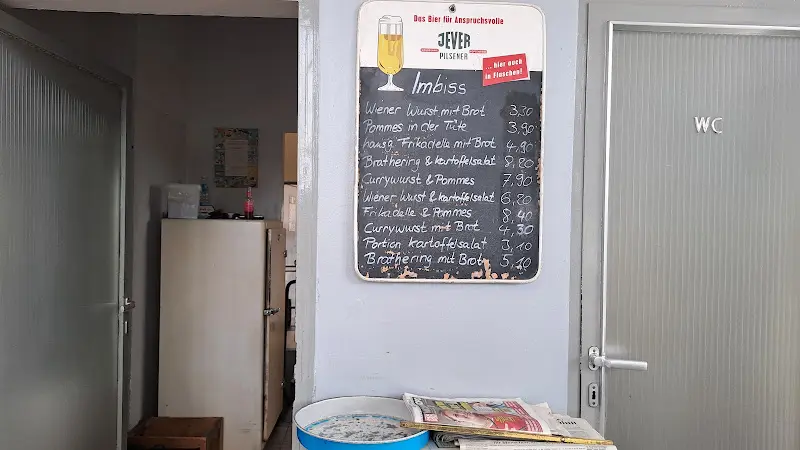 Das Bier für Anspruchsvolle
JEVER
PILSENER
... hier auch
in Flaschen!
Imbiss
Wiener Wurst mit Brot 3,30
Pommes in der Tüte 3,90
hausg. Frikadelle mit Brot 4,90
Brathering & Kartoffelsalat 8,20
Currywurst & Pommes 7,90
Wiener Wurst & Kartoffelsalat 6,20
Frikadelle & Pommes 8,40
Currywurst mit Brot 4,30
Portion Kartoffelsalat 3,10
Brathering mit Brot 5,10
WC